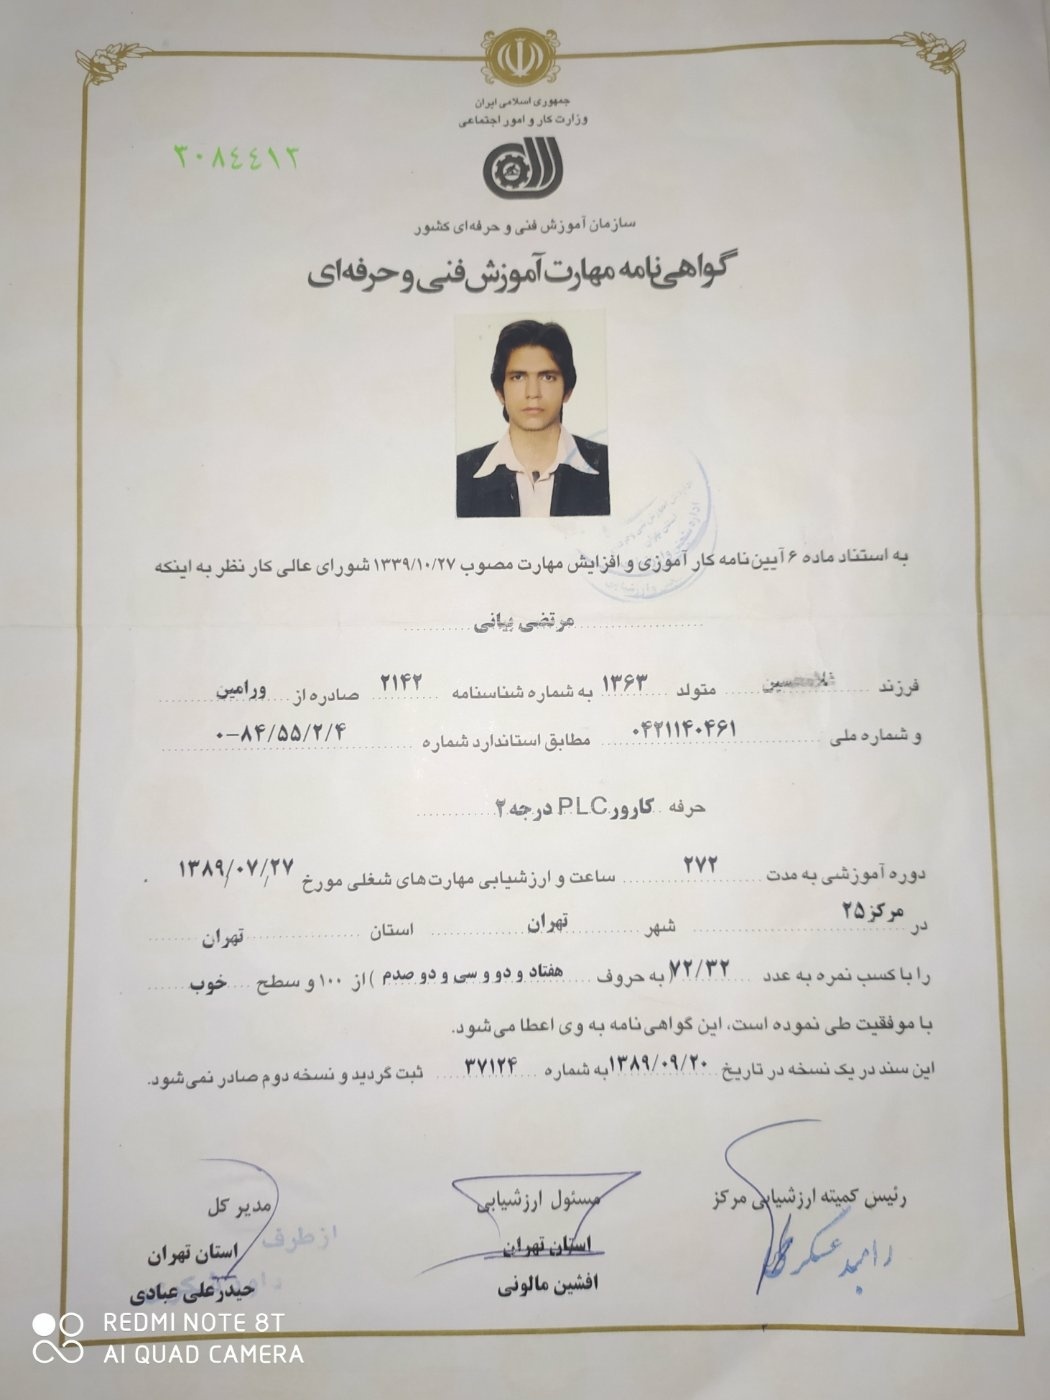 جمهوری اسلامی ایران
وزارت کار و امور اجتماعی
۳۰۸٤٤۱۲
سازمان آموزش فنی و حرفه‌ای کشور
گواهی‌نامه مهارت آموزش فنی و حرفه‌ای
به استناد ماده ۶ آیین‌نامه کار آموزی و افزایش مهارت مصوب ۱۳۳۹/۱۰/۲۷ شورای عالی کار نظر به اینکه
مرتضی بیانی
فرزند غلامحسین متولد ۱۳۶۳ به شماره شناسنامه ۲۱۴۲ صادره از ورامین
و شماره ملی ۰۴۲۱۱۴۰۴۶۱ مطابق استاندارد شماره ۰-۸۴/۵۵/۲/۴
حرفه کارور PLC درجه ۲
دوره آموزشی به مدت ۲۷۲ ساعت و ارزشیابی مهارت‌های شغلی مورخ ۱۳۸۹/۰۷/۲۷
در مرکز ۲۵ شهر تهران استان تهران
را با کسب نمره به عدد ۷۲/۳۲ (به حروف هفتاد و دو و سی و دو صدم) از ۱۰۰ و سطح خوب
با موفقیت طی نموده است، این گواهی‌نامه به وی اعطا می‌شود.
این سند در یک نسخه در تاریخ ۱۳۸۹/۰۹/۲۰ به شماره ۳۷۱۲۴ ثبت گردید و نسخه دوم صادر نمی‌شود.
رئیس کمیته ارزشیابی مرکز
مسئول ارزشیابی
استان تهران
افشین مالونی
مدیر کل
استان تهران
از طرف
حیدرعلی عبادی
REDMI NOTE 8T
AI QUAD CAMERA